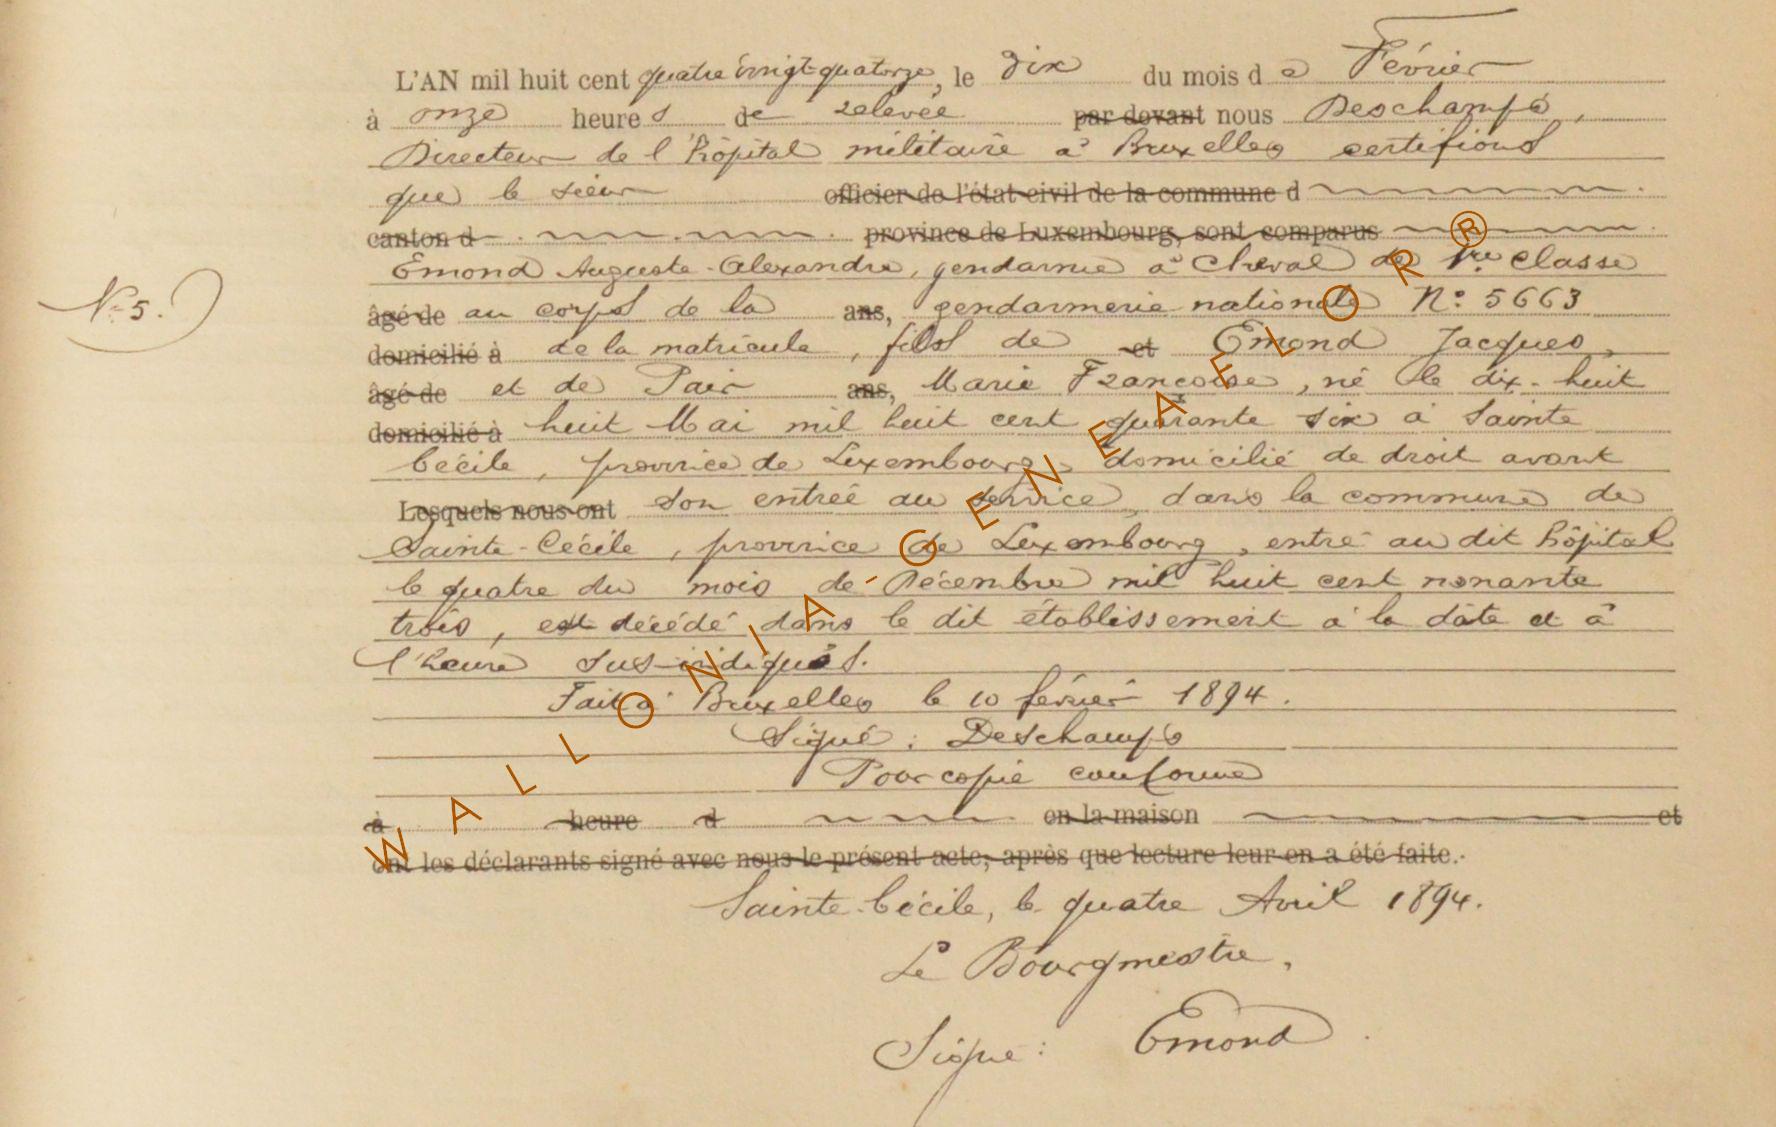 L'AN mil huit cent quatre vingt quatorze, le dix du mois de Février
à onze heures de relevée par devant nous Deschamps,
Directeur de l'hôpital militaire à Bruxelles certifions
que le sieur officier de l'état civil de la commune d
canton d province de Luxembourg, sont comparus
Emond Auguste-Alexandre, gendarme à cheval de 1re classe
N° 5.
âgé de au corps de la ans, gendarmerie nationale N° 5663
domicilié à de la matricule, fils de et Emond Jacques,
âgé de et de Pair ans, Marie Françoise, né le dix-huit
domicilié à huit Mai mil huit cent quarante six à Sainte
Cécile, province de Luxembourg, domicilié de droit avant
Lesquels nous ont son entrée au service, dans la commune de
Sainte-Cécile, province de Luxembourg, entré au dit hôpital
le quatre du mois de Décembre mil huit cent nonante
trois, est décédé dans le dit établissement à la date et à
l'heure sus-indiqués.
Fait à Bruxelles le 10 février 1894.
Signé : Deschamps
Pour copie conforme
à heure d en la maison et
ont les déclarants signé avec nous le présent acte, après que lecture leur en a été faite.
Sainte-Cécile, le quatre Avril 1894.
Le Bourgmestre,
Signé : Emond
WALLONIA-GENEAELOR®